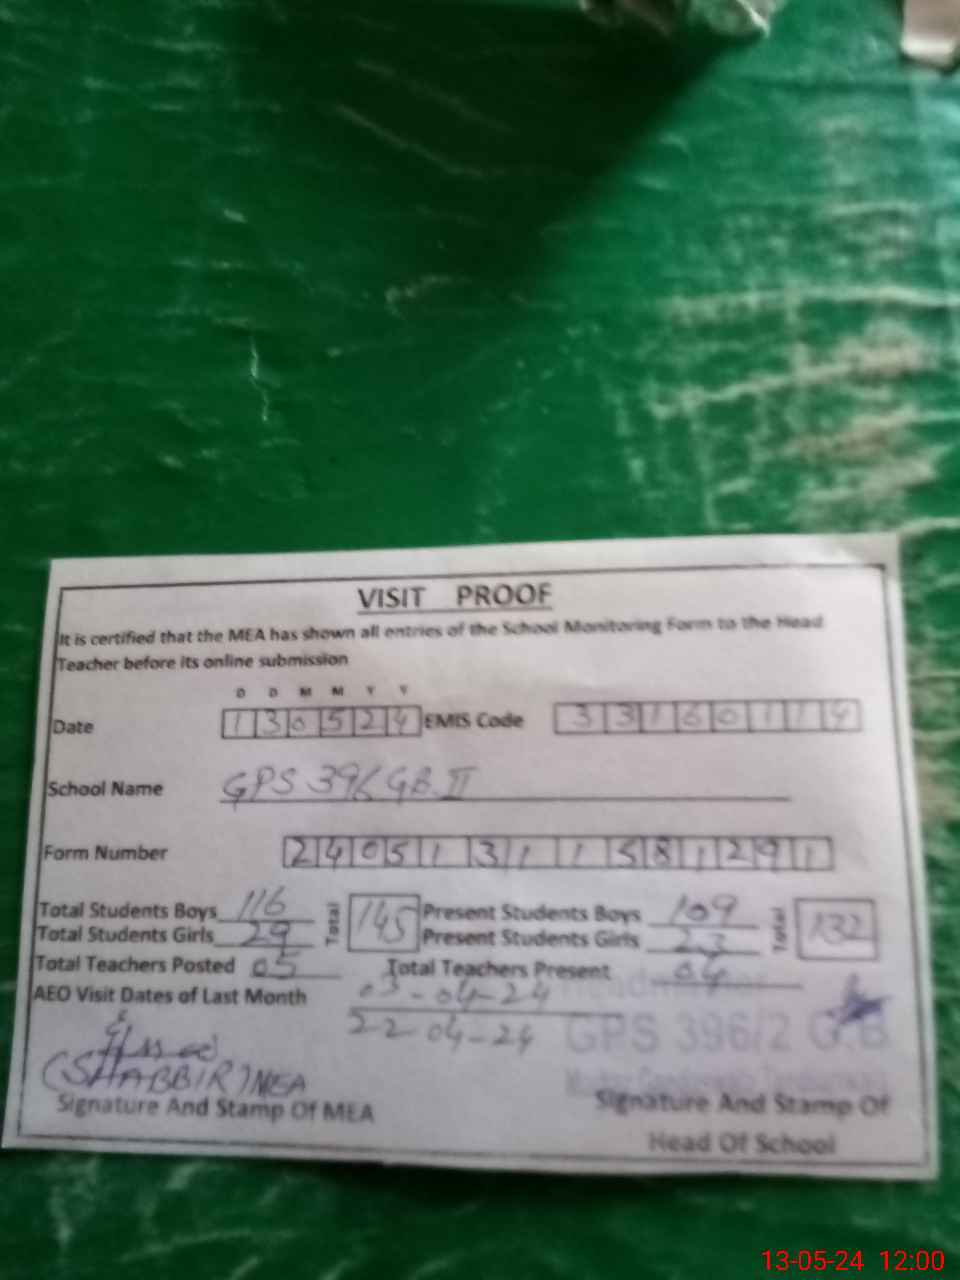 VISIT PROOF
It is certified that the MEA has shown all entries of the School Monitoring Form to the Head
Teacher before its online submission
D D M M Y Y
Date 130524 EMIS Code 33160114
School Name GPS 396 GB II
Form Number 24051311581291
Total Students Boys 116 Total 145 Present Students Boys 109 Total 132
Total Students Girls 29 Present Students Girls 23
Total Teachers Posted 05 Total Teachers Present 04
AEO Visit Dates of Last Month 03-04-24
22-04-24
GPS 396/2 G.B
(SHABBIR) MEA
Signature And Stamp Of MEA Signature And Stamp Of
Head Of School
13-05-24 12:00